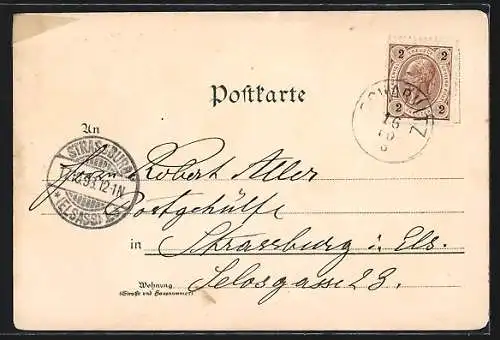 Postkarte
2 2
2 2
SCHWARZ
16
An
Herrn Robert Adler
STRASSBURG
12-1N
(ELSASS)
Postgehülfe
in Strassburg i. Els.
Wohnung
(Straße und Hausnummer)
23.